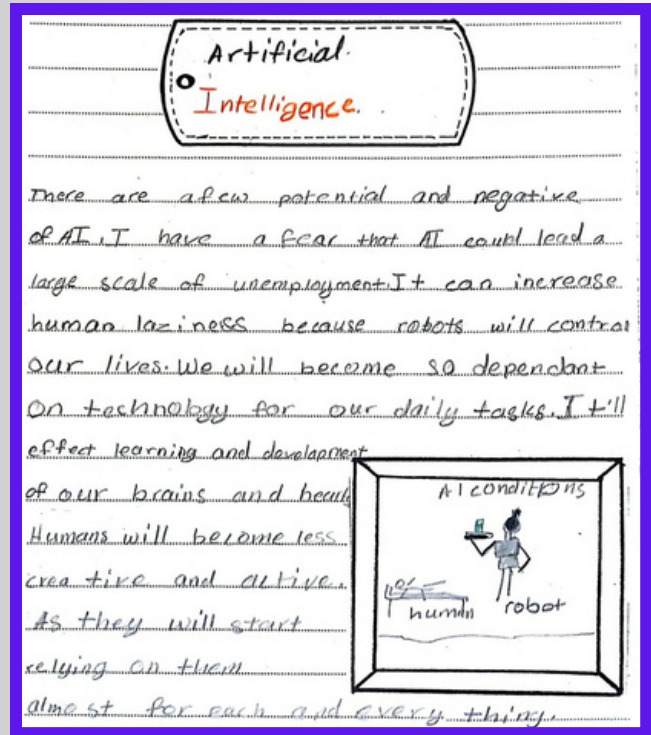 Artificial.
Intelligence.
There are afew potential and negative
of AI, I have a fear that AI could lead a
large scale of unemployment. It can increase
human laziness because robots will control
our lives. We will become so dependant
on technology for our daily tasks. It'll
effect learning and development
of our brains and
Humans will become less
creative and active.
As they will start
relying on them
almost for each and every thing.
AI conditions
human
robot